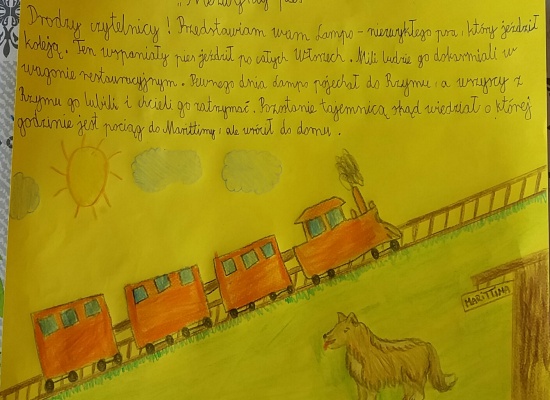 "Niezwykły pies"
Drodzy czytelnicy! Przedstawiam wam Lampo - niezwykłego psa, który jeździł
koleją. Ten wspaniały pies jeździł po całych Włoszech. Mili ludzie go dokarmiali w
wagonie restauracyjnym. Pewnego dnia Lampo pojechał do Rzymu, a wszyscy z
Rzymu go lubili i chcieli go zatrzymać. Pozostanie tajemnicą skąd wiedział o której
godzinie jest pociąg do Marittimy, ale wrócił do domu.
MARITTINA